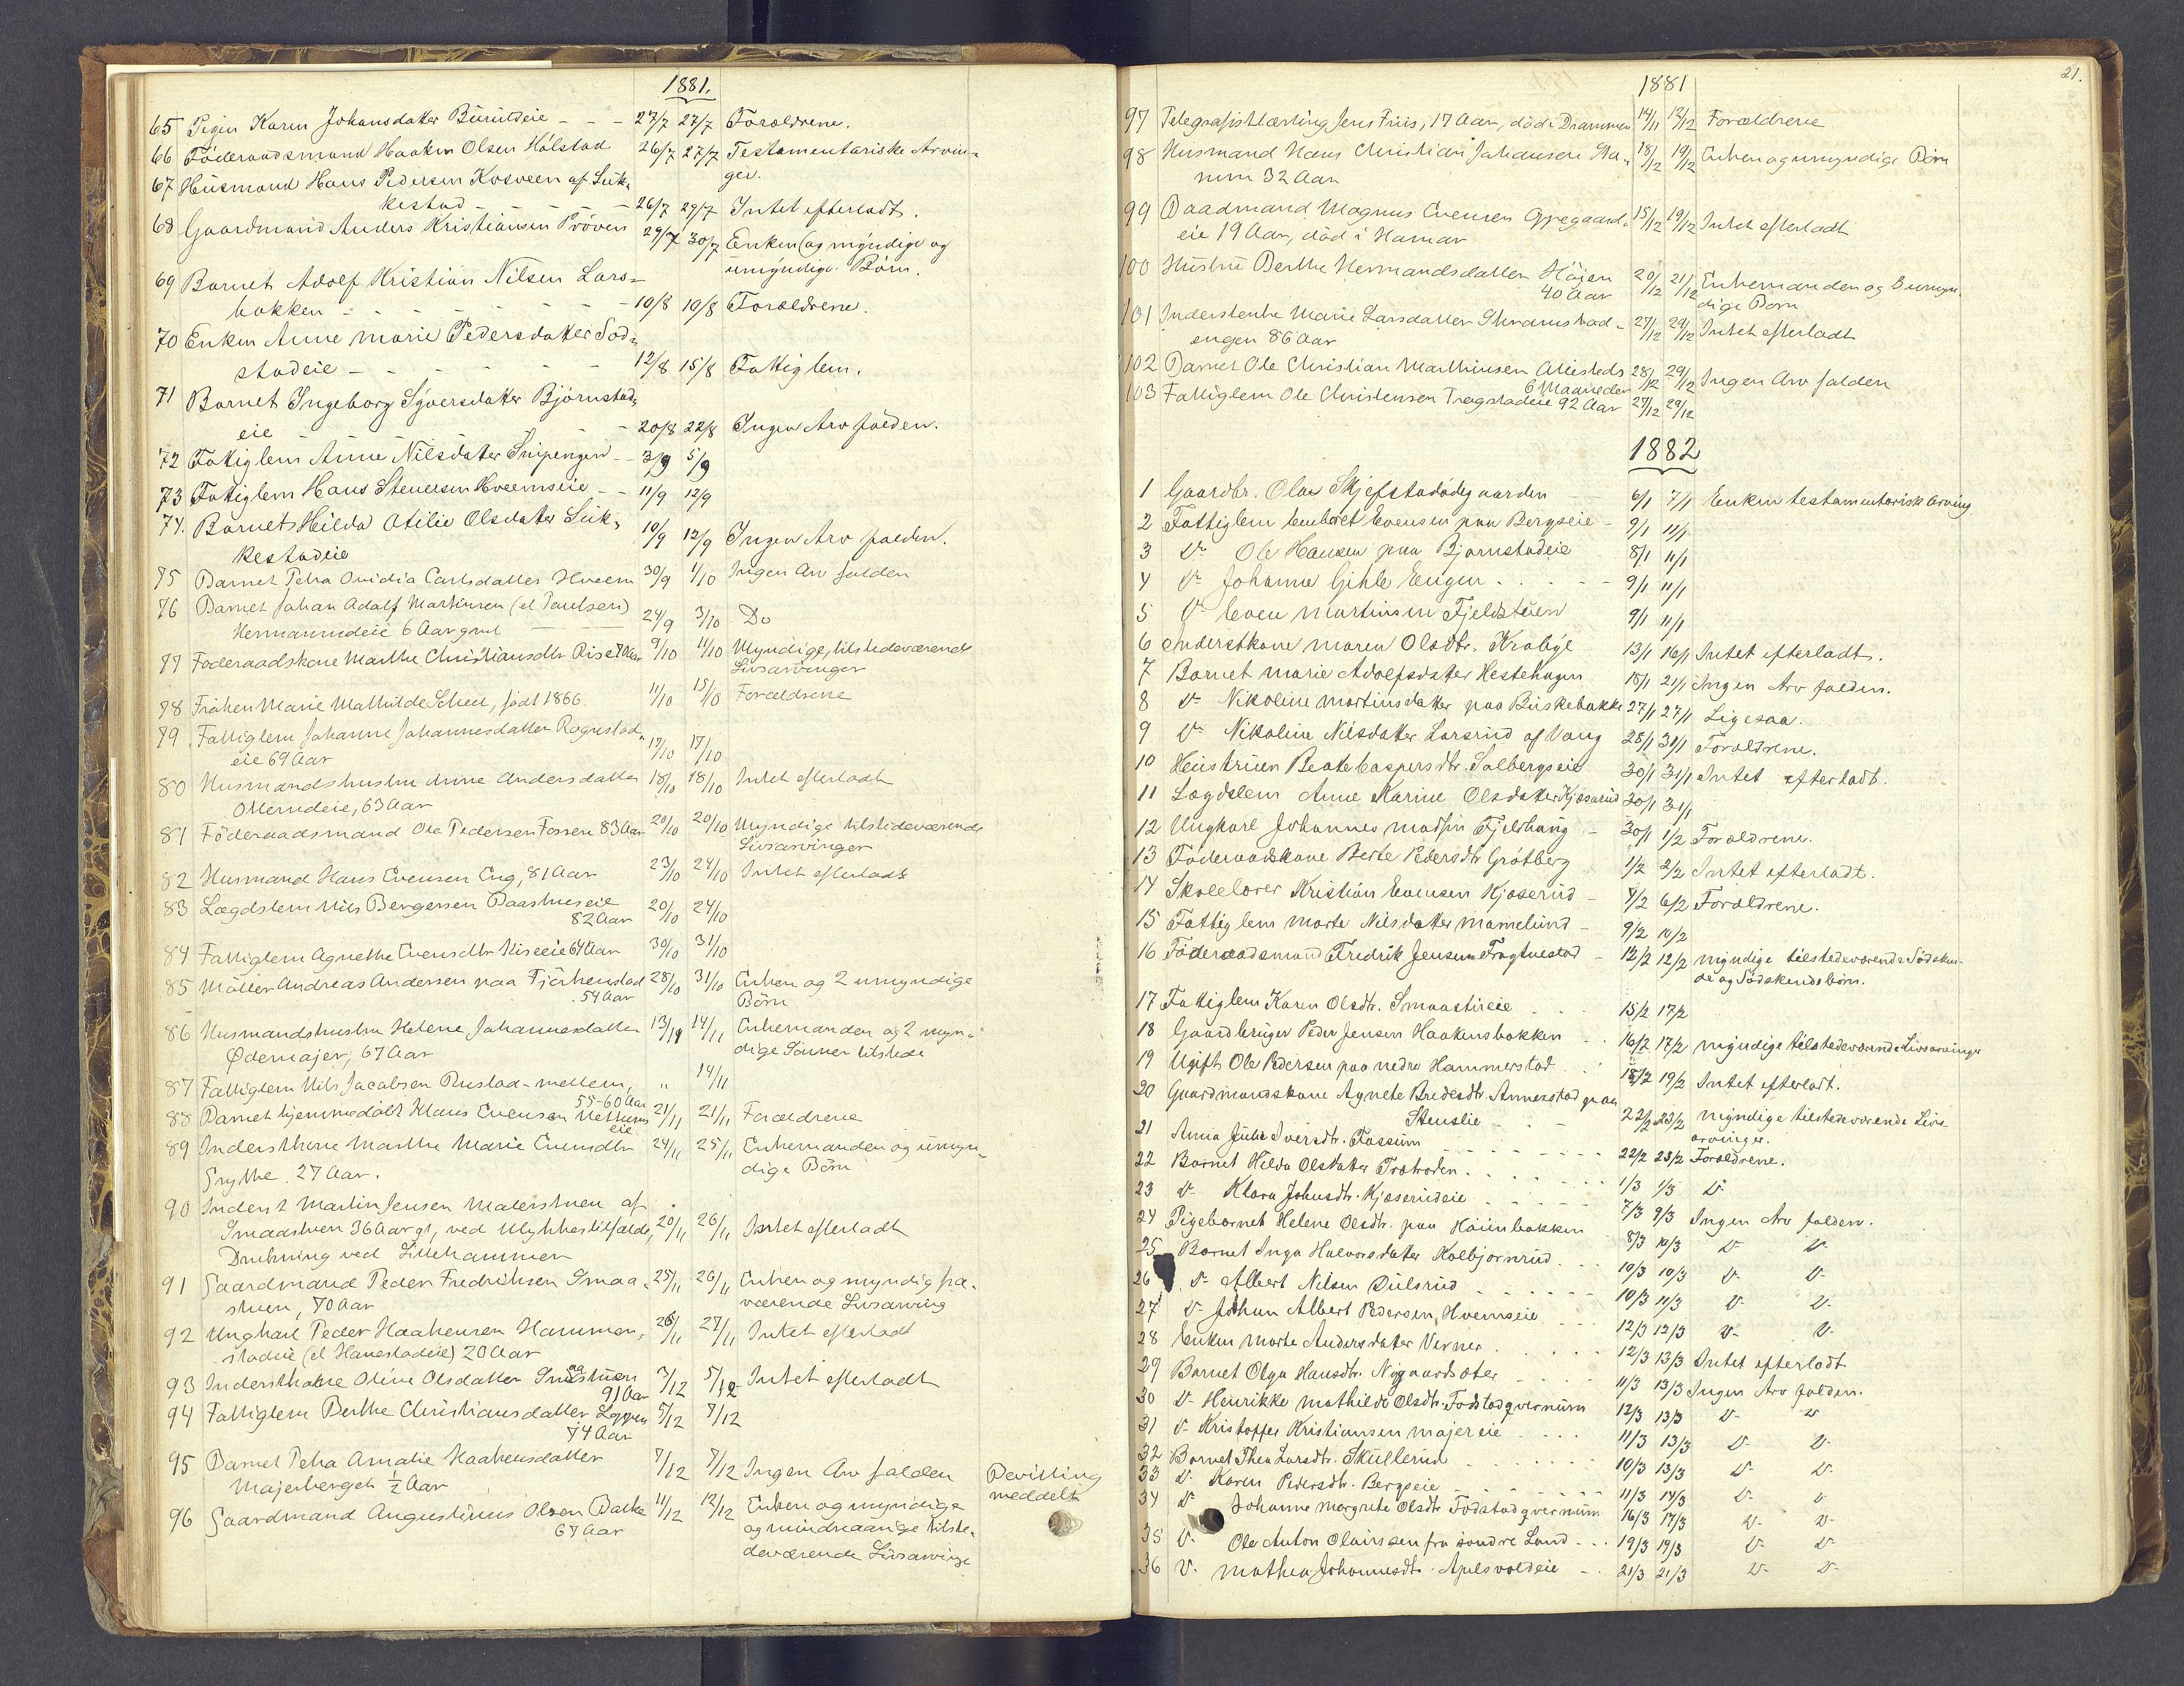 1881.
65 Pigen Karen Johansdatter Buruldeie - - - 27/7 27/7 Forældrene.
66 Föderaadsmand Haaken Olsen Hólstad 26/7 27/7 Testamentariske Arvin-
ger.
67 Husmand Hans Pedersen Kosveen af Suk-
kestad - - - - 26/7 29/7 Intet efterladt.
68 Gaardmand Anders Kristiansen Pröven 29/7 30/7 Enken (og myndige og
umyndige Börn.
69 Barnet Adolf Kristian Nilsen Lars-
bakken - - - - 10/8 10/8 Forældrene.
70 Enken Anne Marie Pedersdatter Sod-
stadeie - - - - 12/8 15/8 Fattiglem.
71 Barnet Ingeborg Syversdatter Björnstad-
eie - - - - 20/8 22/8 Ingen Arv falden.
72 Fattiglem Anne Nilsdatter Snipengen - - 3/9 5/9
73 Fattiglem Hans Stenersen Hveemseie - - 11/9 12/9
74. Barnet Hilda Otilie Olsdatter Suk-
kestadeie 10/9 12/9 Ingen Arv falden.
75 Barnet Petra Ovidia Carlsdatter Hveem 30/9 1/10 Ingen Arv falden
76 Barnet Johan Adolf Martinsen (el Paulsen)
Hermanrudeie 6 Aar gml 24/9 3/10 Do
77 Foderaadskone Marthe Christiansdtr Rise 70 Aar 9/10 11/10 Myndige, tilstedeværende
Livsarvinger
78 Fröken Marie Mathilde Scheel, født 1866 11/10 15/10 Forældrene
79 Fattiglem Johanne Johannesdatter Rognstad-
eie 69 Aar 17/10 17/10
80 Husmandshustru Anne Andersdatter 18/10 18/10 Intet efterladt
Ollerudeie, 63 Aar
81 Föderaadsmand Ole Pedersen Fossen 83 Aar 20/10 20/10 Myndige tilstedeværende
Livsarvinger
82 Husmand Hans Evensen Eng, 81 Aar 23/10 24/10 Intet efterladt
83 Lægdslem Nils Bergersen Baashuseie
82 Aar 20/10 24/10
84 Fattiglem Agnethe Evensdtr Viseeie 64 Aar 30/10 31/10
85 Möller Andreas Andersen paa Fjörkenstad 28/10 31/10 Enken og 2 umyndige
54 Aar Börn
86 Husmandshustru Helene Johannesdatter 13/11 14/11 Enkemanden og 2 myn-
Ødemajer, 67 Aar dige Sönner tilstede
87 Fattiglem Nils Jacobsen Rustad-mellem, " 14/11
55-60 Aar
88 Barnet hjemmedöbt Klaus Evensen Nettum 21/11 21/11 Forældrene
eie
89 Inderstkone Marthe Marie Evensdtr 24/11 25/11 Enkemanden og umyn-
Grythe. 27 Aar. dige Börn
90 Inderst Martin Jensen Malerstuen af
Smaastuen 36 Aar gl, ved Ulykkestilfælde, 20/11 26/11 Intet efterladt
Drukning ved Lillehammer
91 Gaardmand Peder Fredriksen Smaa- 25/11 26/11 Enken og myndig fra-
stuen, 70 Aar værende Livsarving
92 Ungkarl Peder Haakensen Hammer- 26/11 27/11 Intet efterladt
stadeie (el Hanestadeie) 20 Aar
93 Inderstkone Oline Olsdatter Smaastuen 3/12 5/12 Intet efterladt
91 Aar
94 Fattiglem Berthe Christiansdatter Loppen 5/12 7/12
74 Aar
95 Barnet Petra Amalie Haakensdatter
Majerberget ½ Aar 7/12 7/12 Ingen Arv falden Bevilling
meddelt
96 Gaardmand Augustinus Olsen Balke 11/12 12/12 Enken og myndige
67 Aar og mindreaarige tilste-
deværende Livsarvinge
21.
1881
97 Telegrafistlærling Jens Friis, 17 Aar, död i Drammen 14/11 12/12 Forældrene
98 Husmand Hans Christian Johansen Sta- 18/12 19/12 Enken og umyndige Börn
num 32 Aar
99 Baadmand Magnus Evensen Gjøgaard- 15/12 19/12 Intet efterladt
eie 19 Aar, död i Hamar
100 Hustru Berthe Hermandsdatter Höjen 20/12 21/12 Enkemanden og 3 umyn-
40 Aar dige Børn
101 Inderstenke Marie Larsdatter Skramstad- 27/12 29/12 Intet efterladt
engen 86 Aar
102 Barnet Ole Christian Marthinsen Alfstads 28/12 29/12 Ingen Arv falden
6 Maaneder
103 Fattiglem Ole Christensen Trogstadeie 92 Aar 27/12 29/12
1882
1 Gaardbr. Olav Skjefstadödegaarden 6/1 7/1 Enken testamentarisk Arving
2 Fattiglem Embret Evensen paa Bergseie - 9/1 11/1
3 D- Ole Hansen paa Bjørnstadeie 8/1 11/1
4 D- Johanne Gihle Engen . . . - - 9/1 11/1
5 D- Even Martinsen Fjeldstuen 9/1 11/1
6 Inderstkone Maren Olsdtr. Krabye 13/1 16/1 Intet efterladt.
7 Barnet Marie Adolfsdatter Hestehagen 18/1 21/1 Ingen Arv falden.
8 D- Nikoline Martinsdatter paa Biskebakke 27/1 27/1 Ligesaa.
9 D- Nikoline Nilsdatter Larsrud af Vang 28/1 31/1 Forældrene.
10 Hustruen Beate Caspersdtr. Salbergseie 30/1 31/1 Intet efterladt.
11 Lægdslem Anne Karine Olsdatter Kjøserud 30/1 31/1
12 Ungkarl Johannes Madsin Fjeldhaug - 30/1 1/2 Forældrene.
13 Føderaadskone Berte Pedersdtr Grötberg 1/2 2/2 Intet efterladt.
14 Skolelærer Kristian Evensen Kjøserud - 4/2 6/2 Forældrene.
15 Fattiglem Marte Nilsdatter Mamelund - 9/2 10/2
16 Föderaadsmand Fredrik Jensen Fragtnestad - 12/2 12/2 Myndige tilstedeværende Södsken-
de og Södskendsbörn.
17 Fattiglem Karen Olsdtr. Smaastueeie . . . 15/2 17/2
18 Gaardbruger Peder Jensen Haakensbakken . . 16/2 17/2 Myndige tilstedeværende Livsarvinger
19 Ugift Ole Pedersen paa nedre Hammerstad . . 18/2 19/2 Intet efterladt.
20 Gaardmandskone Agnete Bredesdtr. Annexstad paa
Stenslie - - - 22/2 23/2 Myndige tilstedeværende Livs-
arvinger.
21 Anna Julie Iversdtr. Fossum - - - - 22/2 23/2 Forældrene.
22 Barnet Hilda Olsdatter Trætroden . . . . 1/3 1/3 D-
23 D- Klara Johnsdtr. Kjøserudeie - - - 7/3 9/3 Ingen Arv falden.
24 Pigebarnet Helene Olsdtr. paa Hauenbakken . 8/3 10/3 D- D-
25 Barnet Inga Halvorsdatter Kolbjørnrud . . . 10/3 10/3 D- D-
26 D- Albert Nilsen Dulsrud - - - - - 10/3 11/3 D- D-
27 D- Johan Albert Pedersen, Hvemseie . . . 12/3 12/3 D- D-
28 Enken Marte Andersdatter Verner . . . . 12/3 13/3 Intet efterladt
29 Barnet Olga Hansdtr. Nygaardsæter . . . . 11/3 13/3 Ingen Arv falden.
30 D- Henrikke Mathilde Olsdtr. Fodstadqvernum 12/3 13/3 D- D-
31 D- Kristoffer Kristiansen Majereie . . . . 11/3 13/3 D- D-
32 Barnet Thea Larsdtr. Skullerud . . . . . 10/3 13/3 D- D-
33 D- Karen Pedersdtr. Bergseie - - - - - 11/3 14/3 D- D-
34 D- Johanne Margrete Olsdtr Fodstadqvernum 16/3 17/3 D- D-
35 D- Ole Anton Olaissen fra söndre Land - . . 19/3 19/3 D- D-
36 D- Mathea Johannesdtr. Apelsvoldeie - . . 21/3 21/3 D- D-